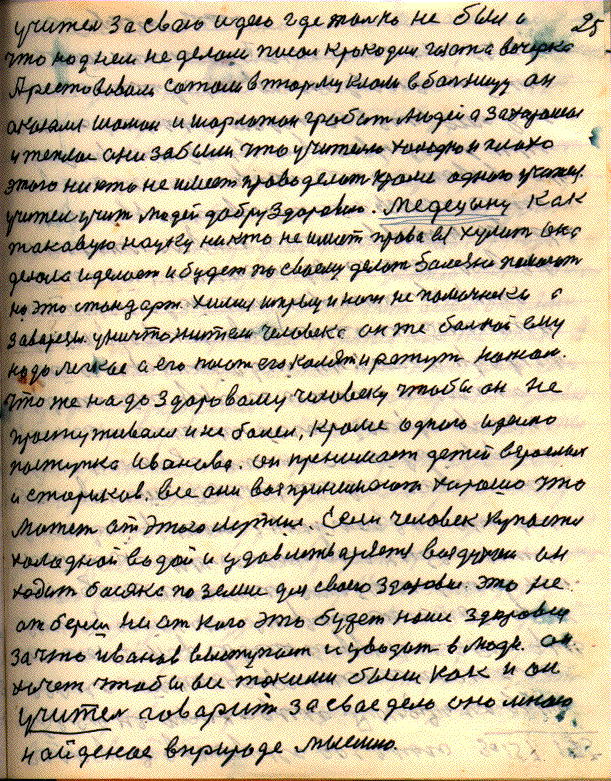 учител за свою идею где только не был а 25
что над нем не делали писал крокодил газета вечорка
Арестововали сожали в тюрму клали в больницу он
оказался шаман и шарлатан грабит людей а захороша
и теплое они забыли что учителю холодно и плохо
этого никто не имеет право делат кроме одного учител.
учител учит людей добру здоровию. Медецыну как
таковую науку никто не имеет права ее хулит она
делала и делает и будет по своему делат болезни помогат
но это стандарт химия шприц и нож не помочники а
заварцы уничтожители человека он же больной ему
надо легкое а его поют его колят и режут ножом.
Что же надо здоровому человеку чтобы он не
простуживался и не болел, кроме одного идеино
поступка Иванова. он принимает детей взрослых
и стариков. все они воспринимают хорошо что
может от этого лутше. Если человек купается
холодной водой и удовлетваряется воздухом он
ходит босяка по земле для своего здоровия. это не
отберет ни от кого это будет наше здоровия
За что Иванов выступает и уводит в люди. Он
хочет чтобы все такими были как и он
учител говорит за свае дело оно мною
найденое в природе мыслию.